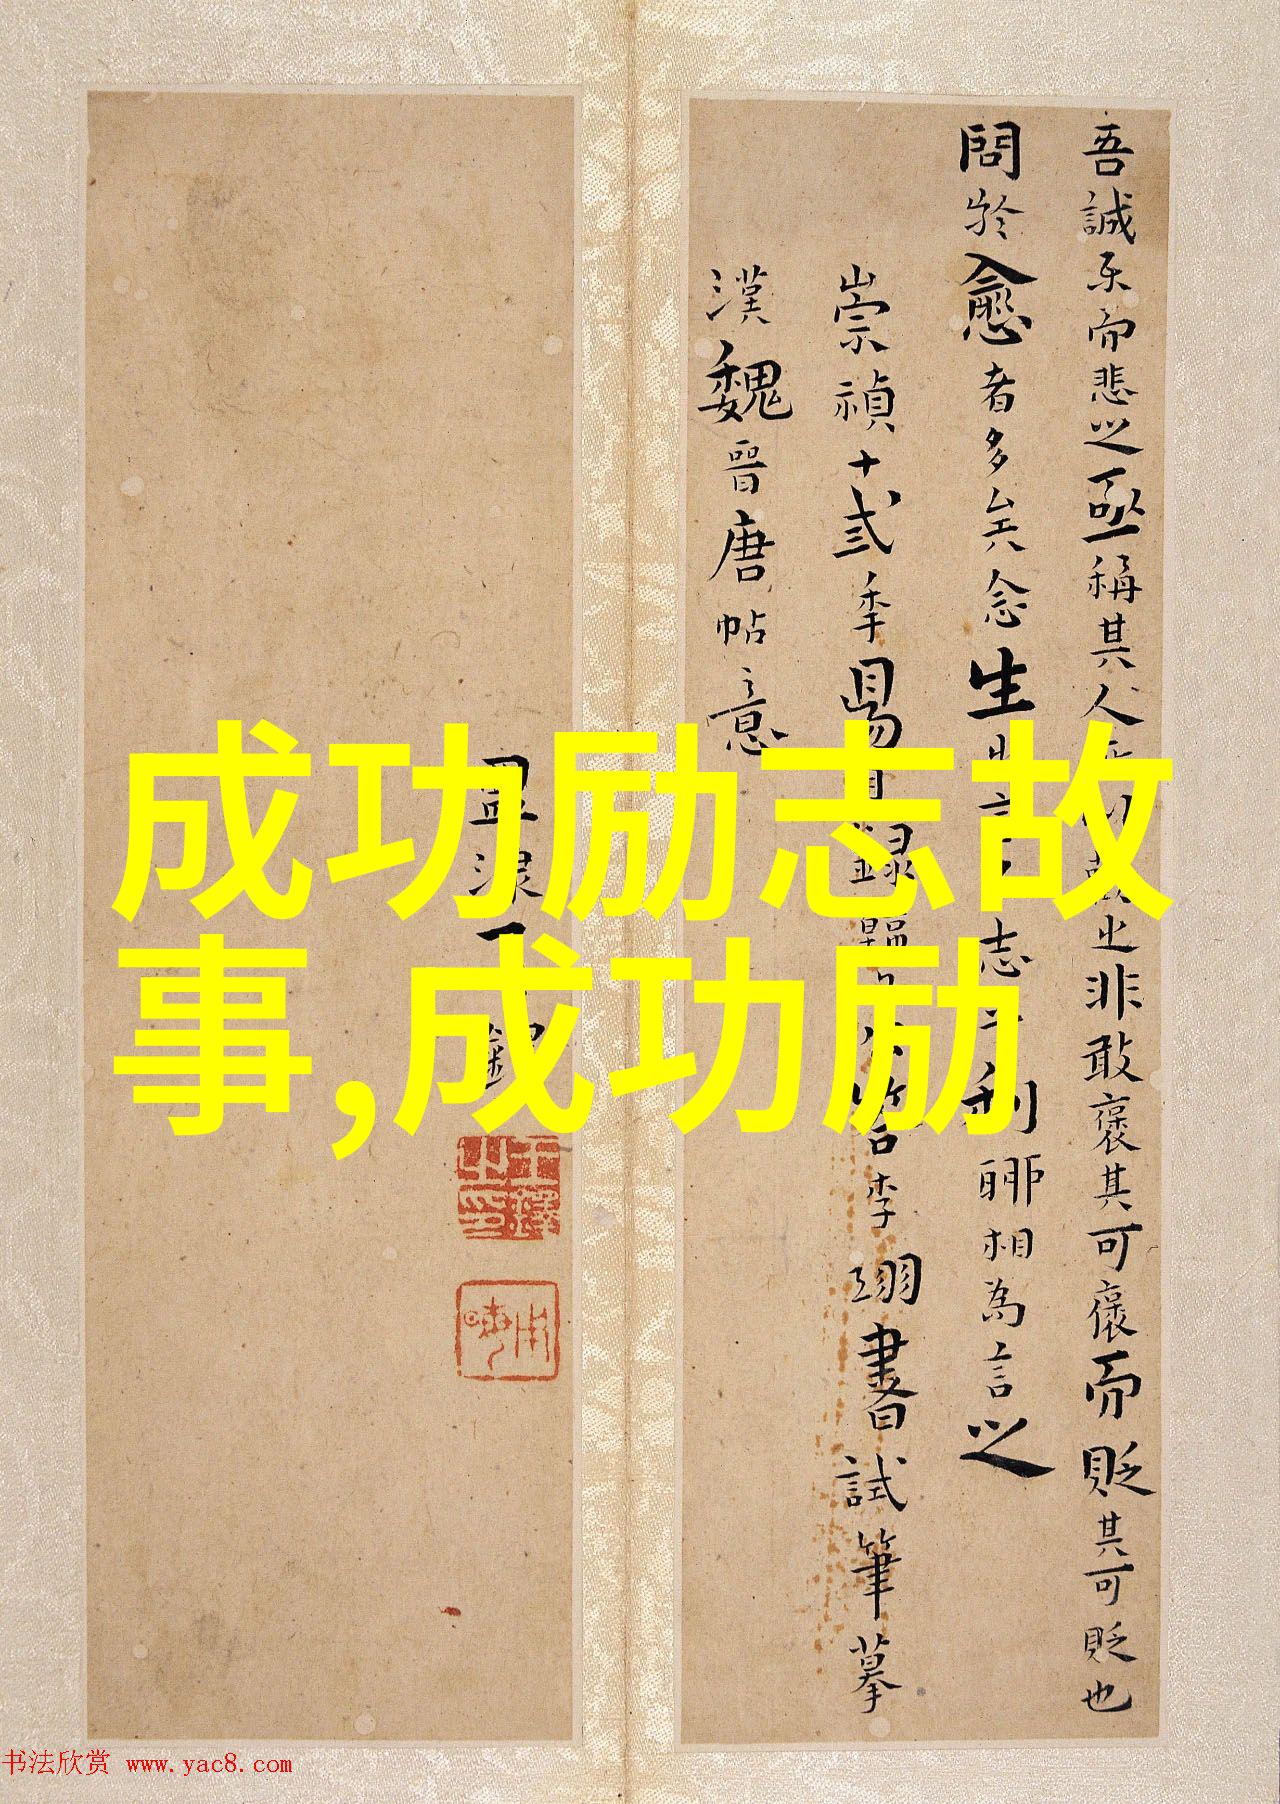 吾誠樂而悲之亟稱其人
之非敢褒其可褒而貶其可貶也
問於愈者多矣念生
志
利聊相為言之
崇禎十貳季
錄
李翊書試筆摹
漢魏晉唐帖意
孟津王
成功励志故
事,成功励
书法欣赏 www.yac8.com